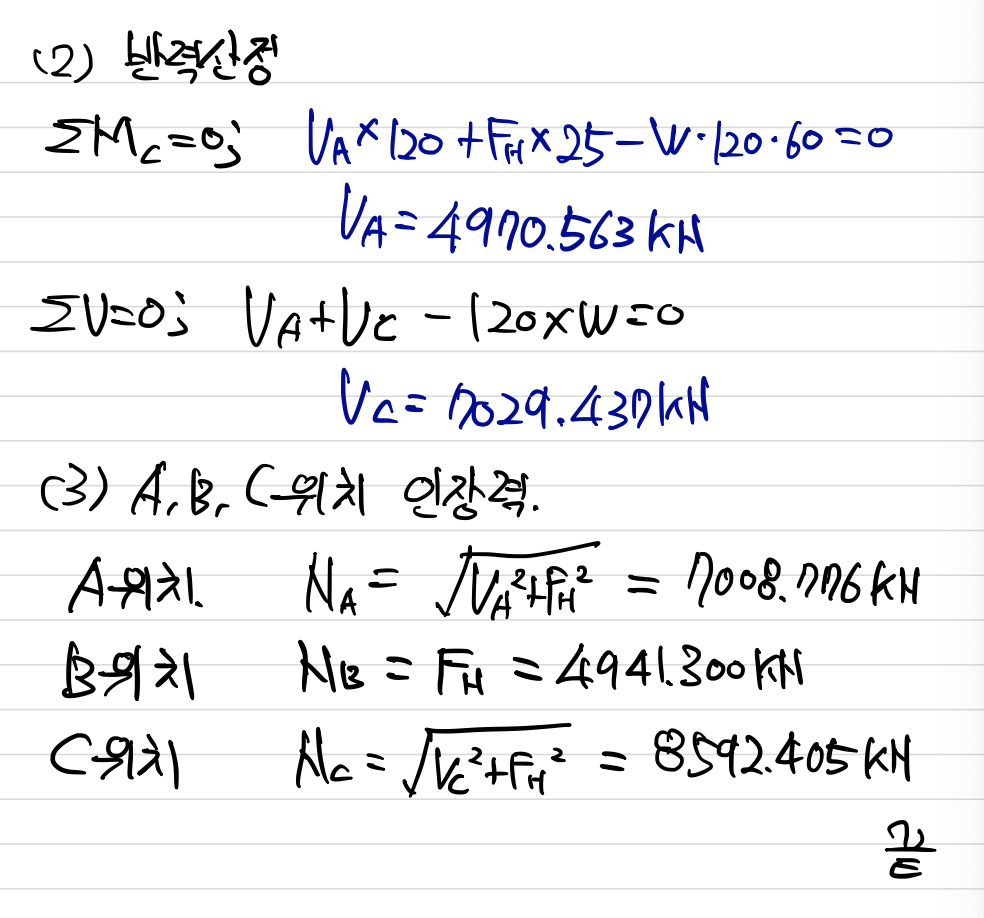 (2) 반력산정
ΣM_C=0; V_A×120+F_H×25-W·120·60=0
V_A=4970.563kN
ΣV=0; V_A+V_C-120×W=0
V_C=7029.437kN
(3) A, B, C위치 인장력.
A위치. N_A=√(V_A²+F_H²)=7008.776kN
B위치 N_B=F_H=4941.300kN
C위치 N_C=√(V_C²+F_H²)=8592.405kN
끝